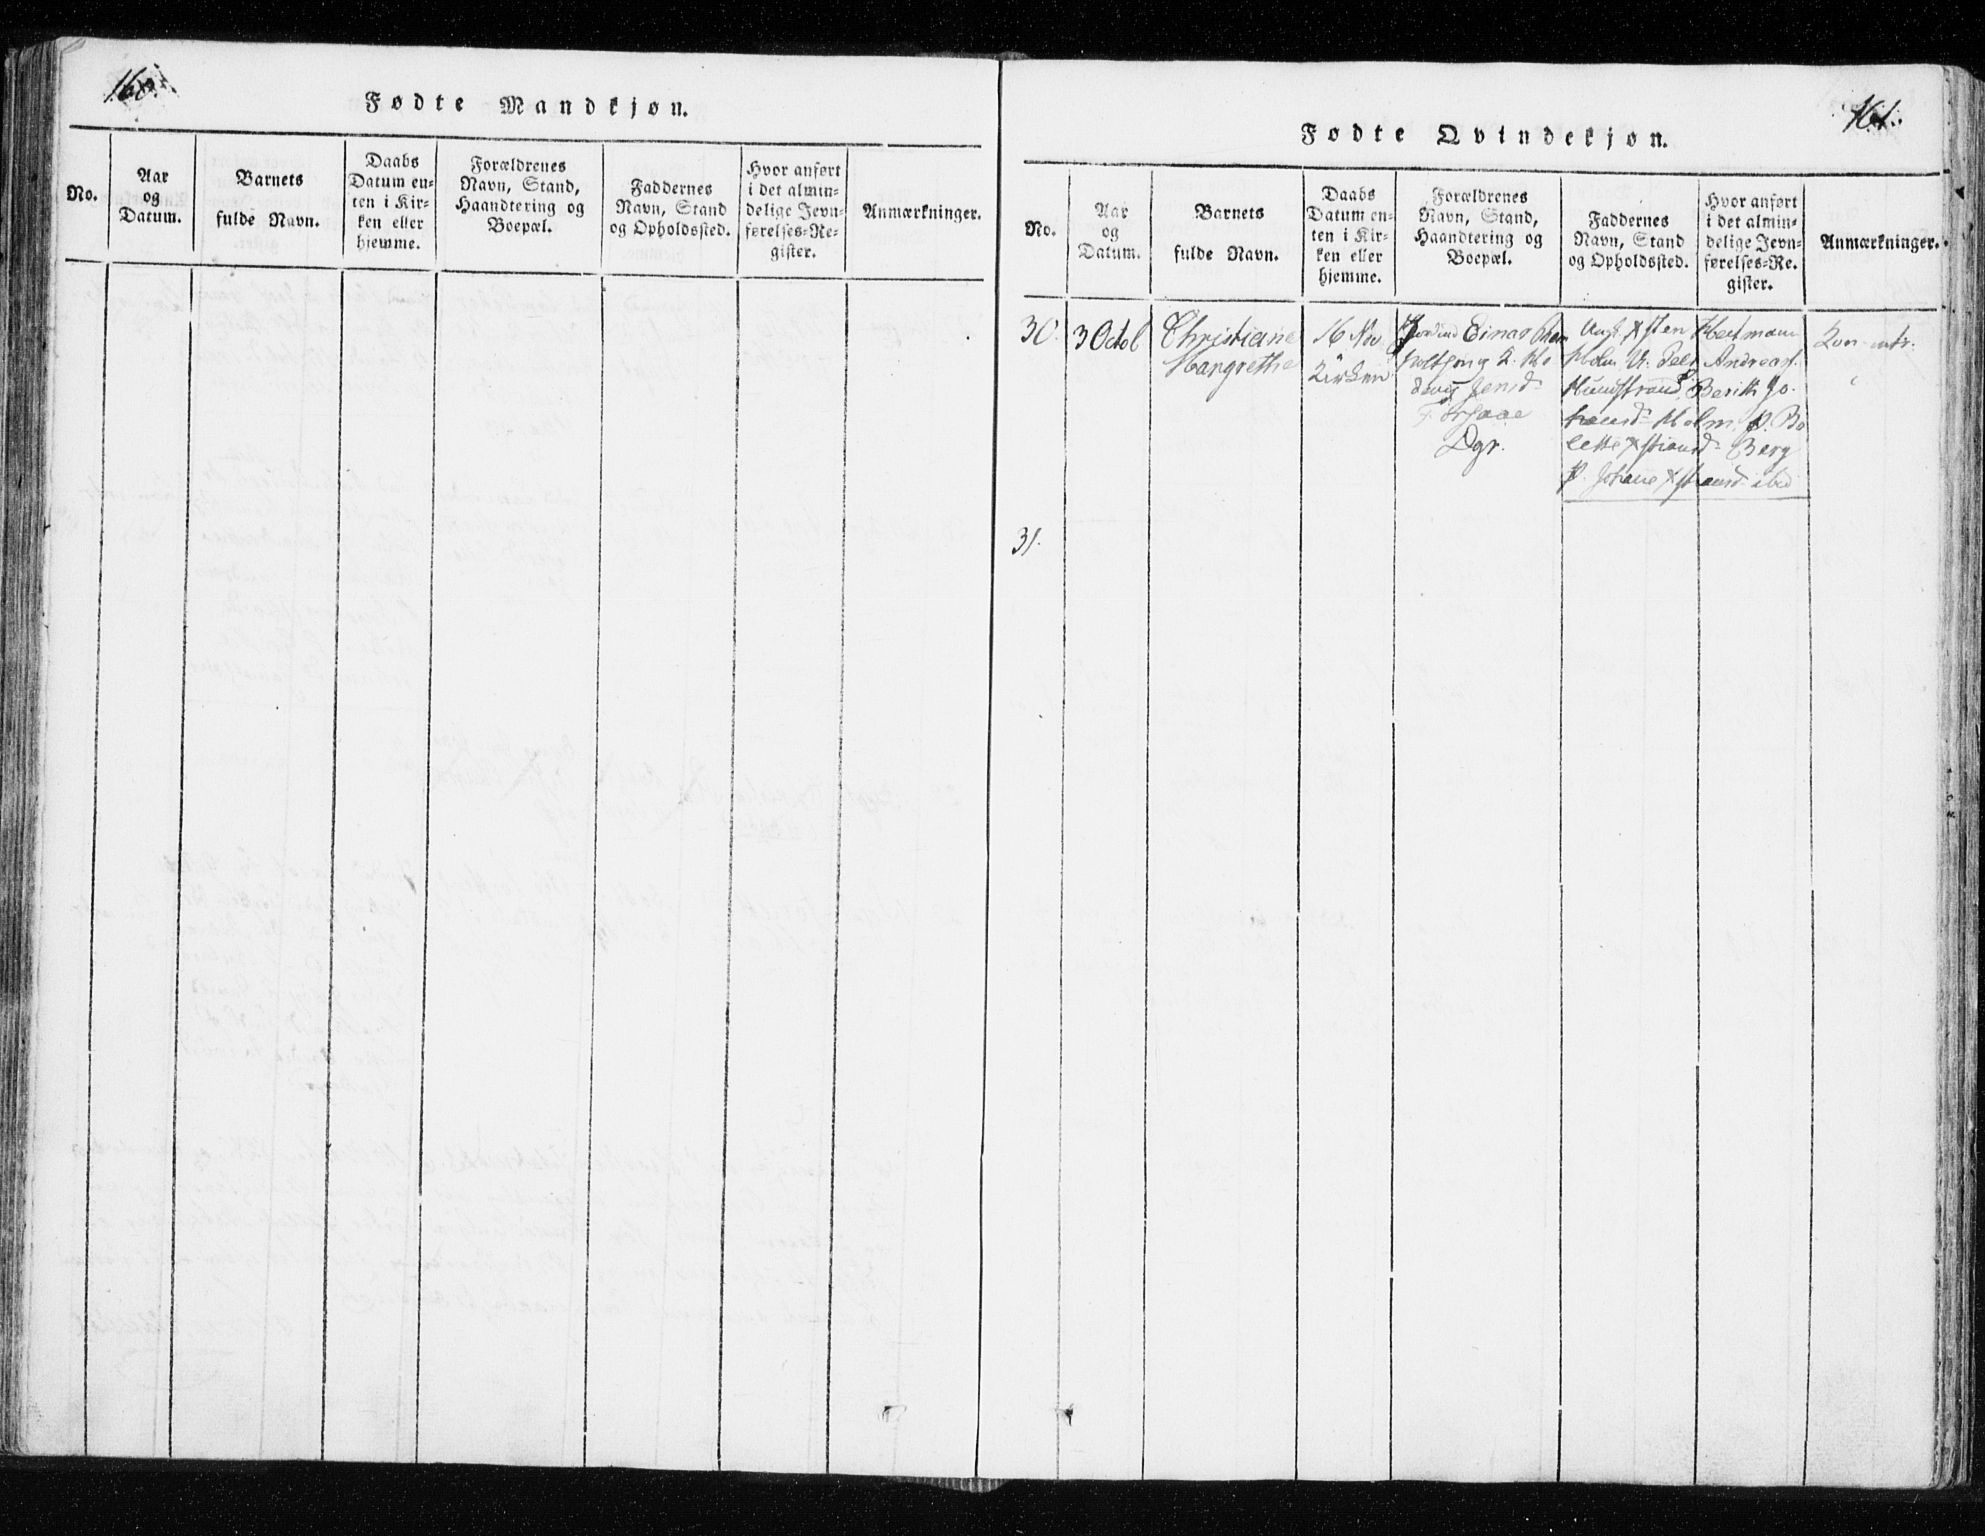 160.
Fødte Mandkjøn.
No.
Aar
og
Datum.
Barnets
fulde Navn.
Daabs
Datum en-
ten i Kir-
ken eller
hjemme.
Forældrenes
Navn, Stand,
Haandtering og
Boepæl.
Faddernes
Navn, Stand
og Opholdssted.
Hvor anført
i det almin-
delige Jevn-
førelses-Re-
gister.
Anmærkninger.
161.
Fødte Qvindekjøn.
No.
Aar
og
Datum.
Barnets
fulde Navn.
Daabs
Datum en-
ten i Kir-
ken eller
hjemme.
Forældrenes
Navn, Stand,
Haandtering og
Boepæl.
Faddernes
Navn, Stand
og Opholdssted.
Hvor anført
i det almin-
delige Jevn-
førelses-Re.
gister.
Anmærkninger.
30.
3 Octob
Christiane
Margrethe
16 Nov
Kirken
Einar
Jensd
Dgr.
Hartmann
Holm Andreas
Berith Jo-
hansd Holm, P. Bo
lette Berg
P. Johane ibid
31.